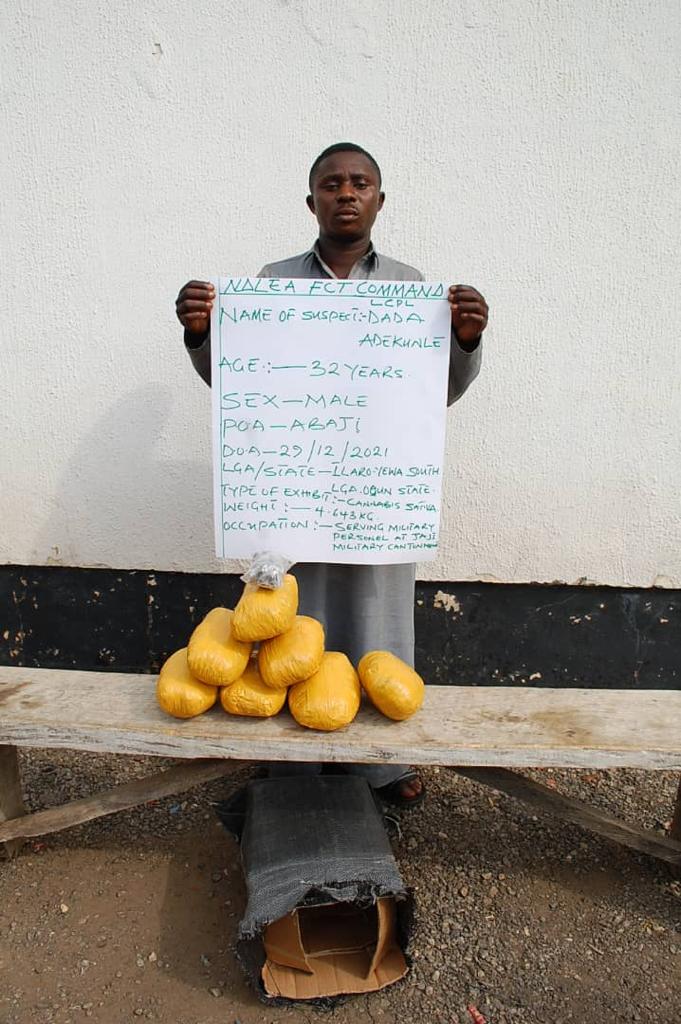 NDLEA FCT COMMAND
LCPL
NAME OF SUSPECT:-DADA
ADEKUNLE
AGE:-— 32 YEARS.
SEX—MALE
POA—ABAJI
DOA—29/12/2021
LGA/STATE—ILARO-YEWA SOUTH
LGA. OGUN STATE.
TYPE OF EXHIBIT:—CANNABIS SATIVA
WEIGHT:— 4.643KG.
OCCUPATION:—SERVING MILITARY
PERSONEL AT JAJI
MILITARY CANTONMEN